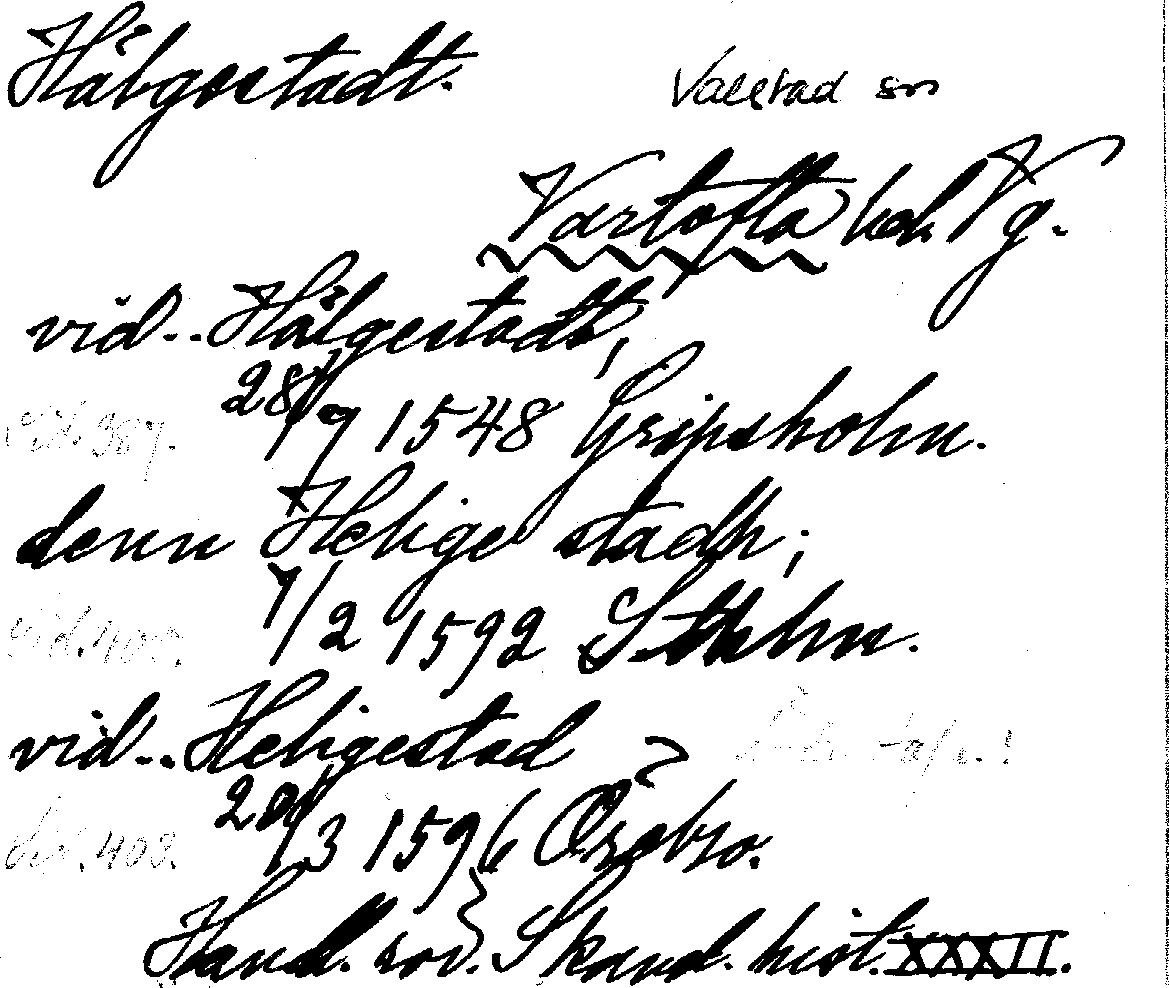 Hälgestadt.
Valstad sn
Vartofta hd. Vg.
vid.. Hälgestadt,
sid. 387. 28/9 1548 Gripsholm.
denn Helige stadh;
sid. 400. 7/2 1592 Stholm.
vid.. Heligestad
sid. 403. 20/3 1596 Örebro.
Handl. rör. Skand. hist. XXXII.